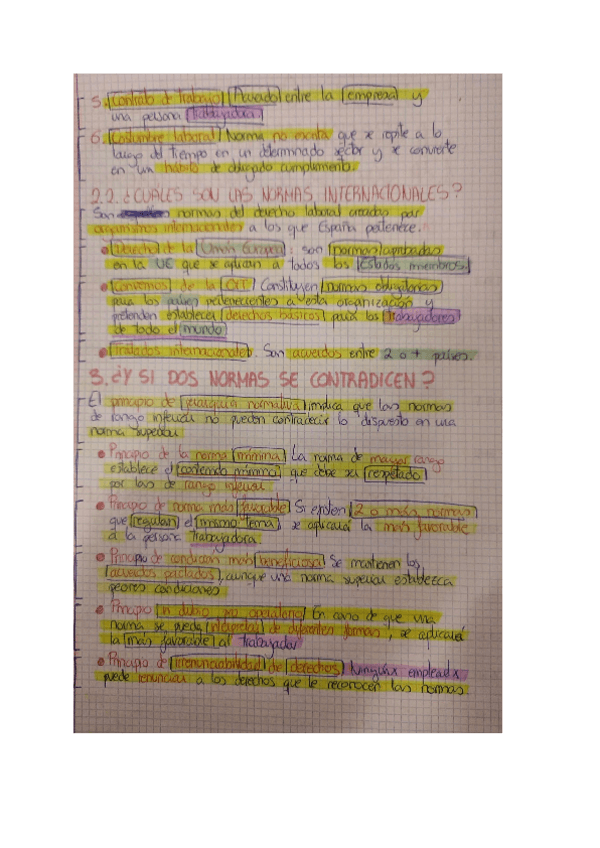 5. Contrato de trabajo Acuerdo entre la empresa y
una persona trabajadora
6. Costumbre laboral Norma no escrita que se repite a lo
largo del tiempo en un determinado sector y se convierte
en un hábito de obligado cumplimiento.
2.2. ¿CUÁLES SON LAS NORMAS INTERNACIONALES?
Son normas del derecho laboral creadas por
organismos internacionales a los que España pertenece.
• Derecho de la Unión Europea: son normas aprobadas
en la UE que se aplican a todos los Estados miembros.
• Convenios de la OIT Constituyen normas obligatorias
para los países pertenecientes a esta organización y
pretenden establecer derechos básicos para los trabajadores
de todo el mundo
• Tratados internacionales. Son acuerdos entre 2 o + países.
3. ¿Y SI DOS NORMAS SE CONTRADICEN?
El principio de jerarquía normativa implica que las normas
de rango inferior no pueden contradecir lo dispuesto en una
norma superior
• Principio de la norma mínima La norma de mayor rango
establece el contenido mínimo que debe ser respetado
por las de rango inferior.
• Principio de norma más favorable Si existen 2 o más normas
que regulan el mismo tema se aplicará la más favorable
a la persona trabajadora.
• Principio de condición más beneficiosa Se mantienen los
acuerdos pactados, aunque una norma superior establezca
peores condiciones
• Principio in dubio pro operario En caso de que una
norma se pueda de diferentes formas, se aplicará
la más favorable al trabajador
• Principio de irrenunciabilidad de derechos Ningún emplead@
puede renunciar a los derechos que le reconocen las normas